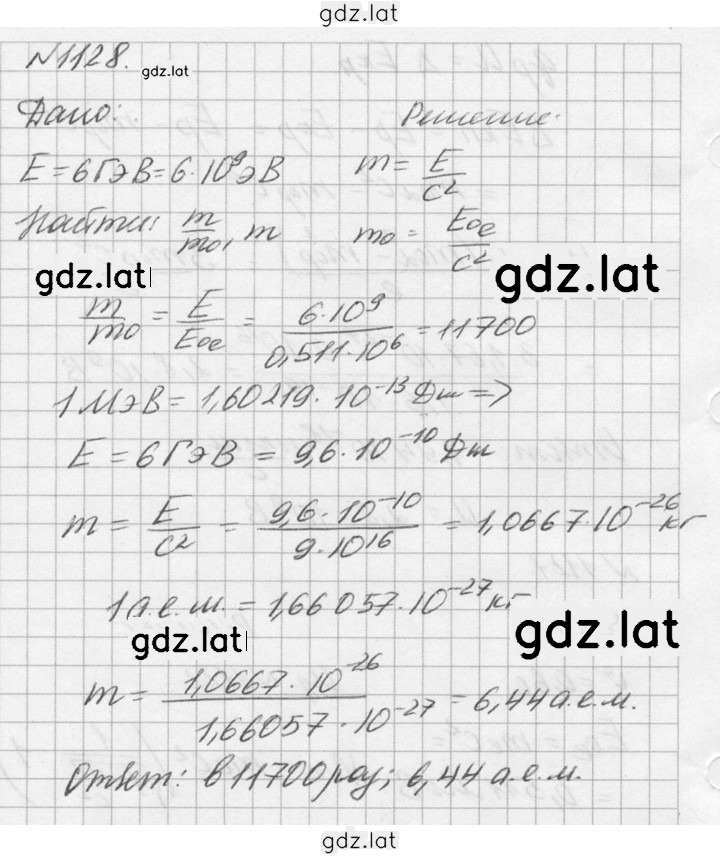 gdz.lat
№1128.
gdz.lat
Дано:
Решение:
E = 6 ГэВ = 6·10⁹ эВ
m = E/c²
Найти: m/m₀, m
m₀ = E₀e/c²
gdz.lat
gdz.lat
m/m₀ = E/E₀e = 6·10⁹/0,511·10⁶ = 11700
1 МэВ = 1,60219·10⁻¹³ Дж =>
E = 6 ГэВ = 9,6·10⁻¹⁰ Дж
m = E/c² = 9,6·10⁻¹⁰/9·10¹⁶ = 1,0667·10⁻²⁶ кг
1 а.е.м. = 1,66057·10⁻²⁷ кг
gdz.lat
gdz.lat
m = 1,0667·10⁻²⁶/1,66057·10⁻²⁷ = 6,44 а.е.м.
Ответ: в 11700 раз; 6,44 а.е.м.
gdz.lat